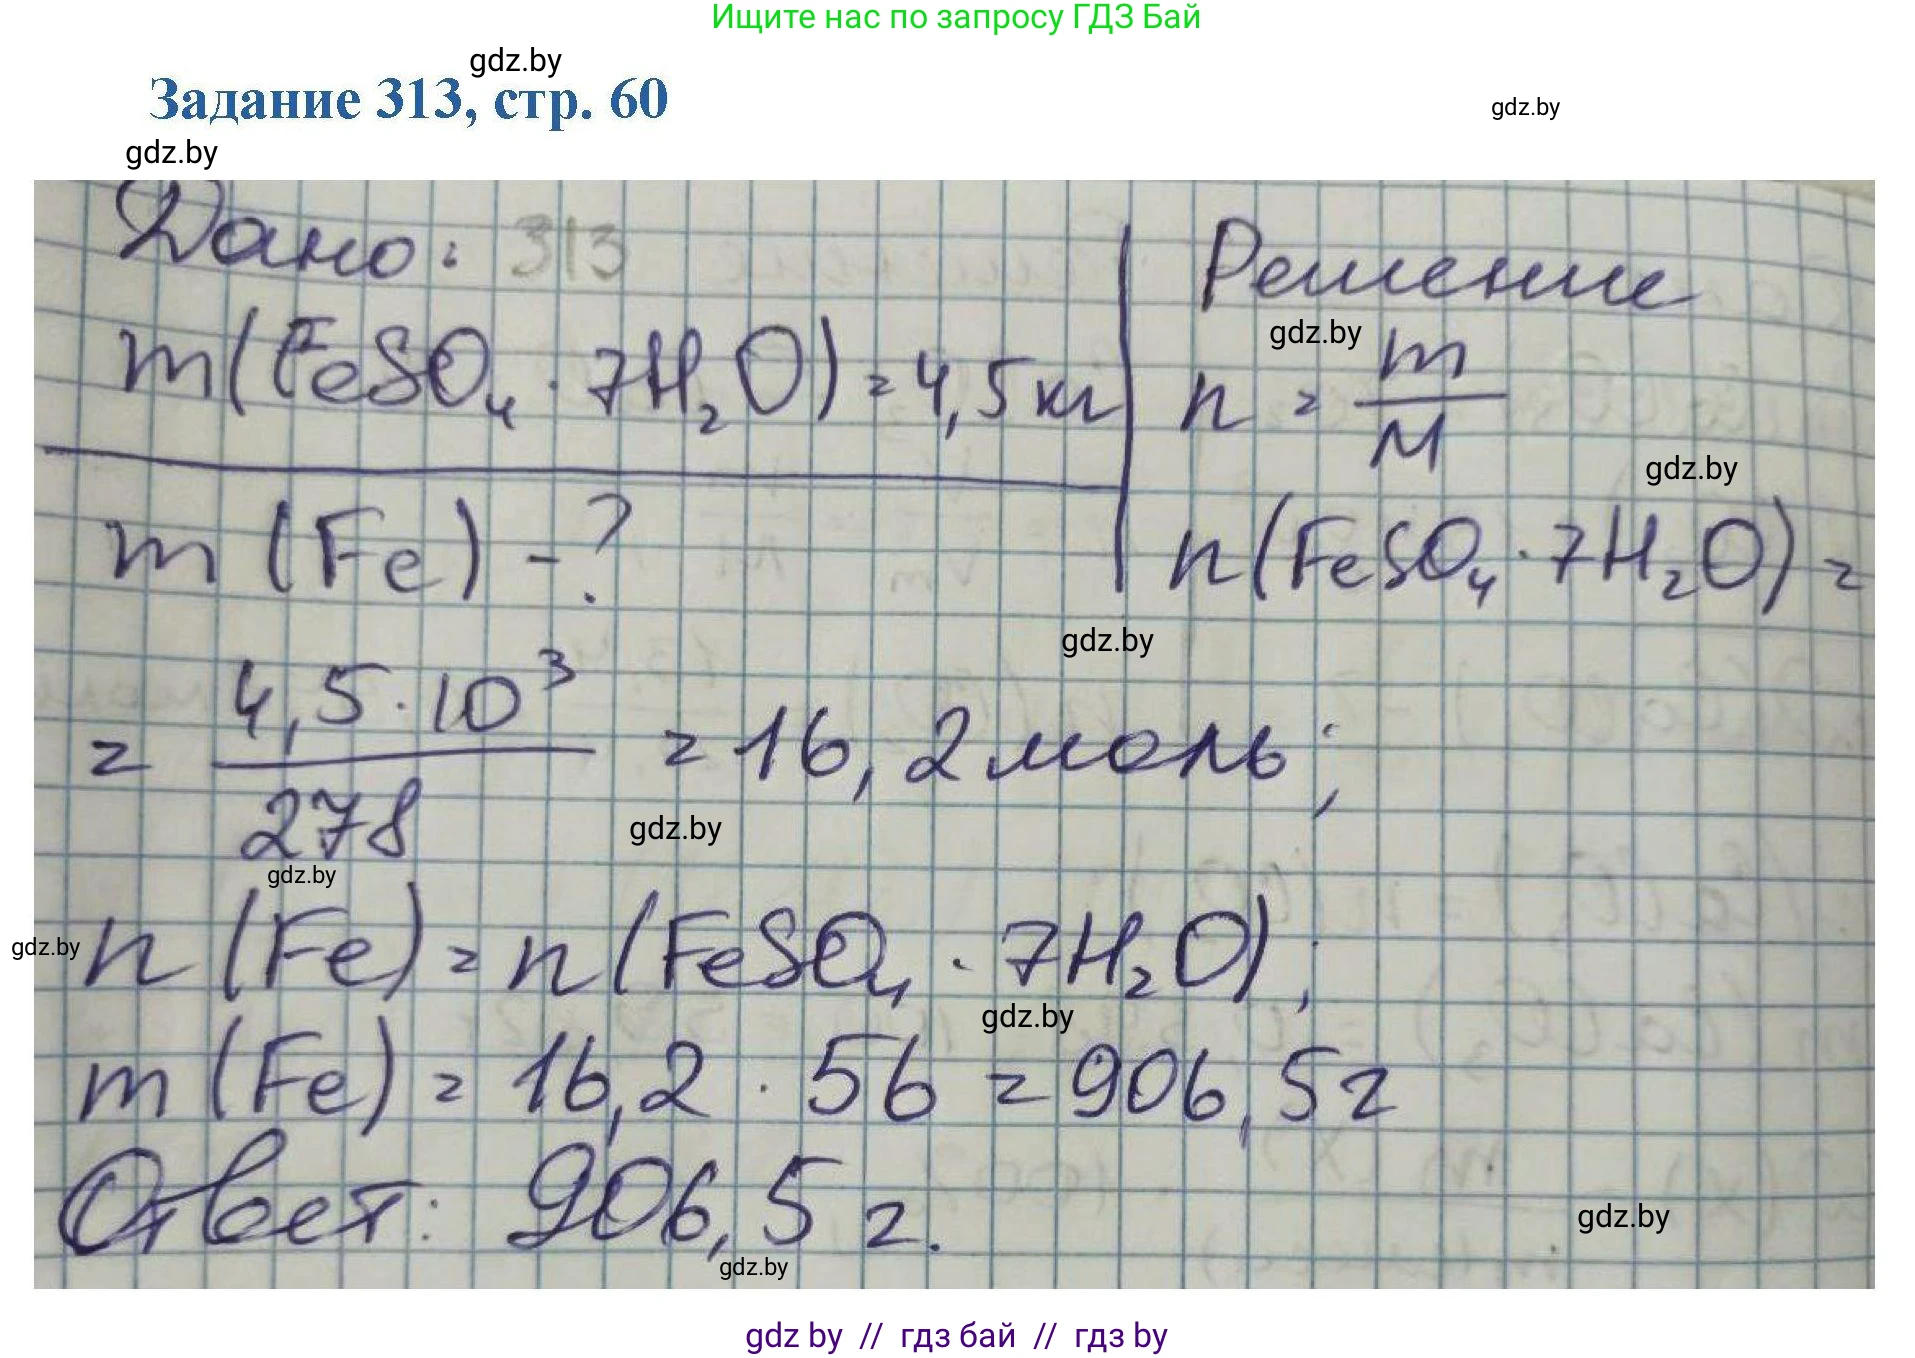 Ищите нас по запросу ГДЗ Бай
gdz.by
Задание 313, стр. 60
gdz.by
gdz.by
Дано: 313
Решение
m(FeSO₄ · 7H₂O) = 4,5 кг
gdz.by
n = m/M
gdz.by
m (Fe) - ?
n(FeSO₄ · 7H₂O) =
gdz.by
= 4,5 · 10³/278 = 16,2 моль;
gdz.by
gdz.by
gdz.by
n (Fe) = n (FeSO₄ · 7H₂O);
gdz.by
m (Fe) = 16,2 · 56 = 906,5 г
Ответ: 906,5 г.
gdz.by
gdz.by
gdz by // гдз бай // гдз by